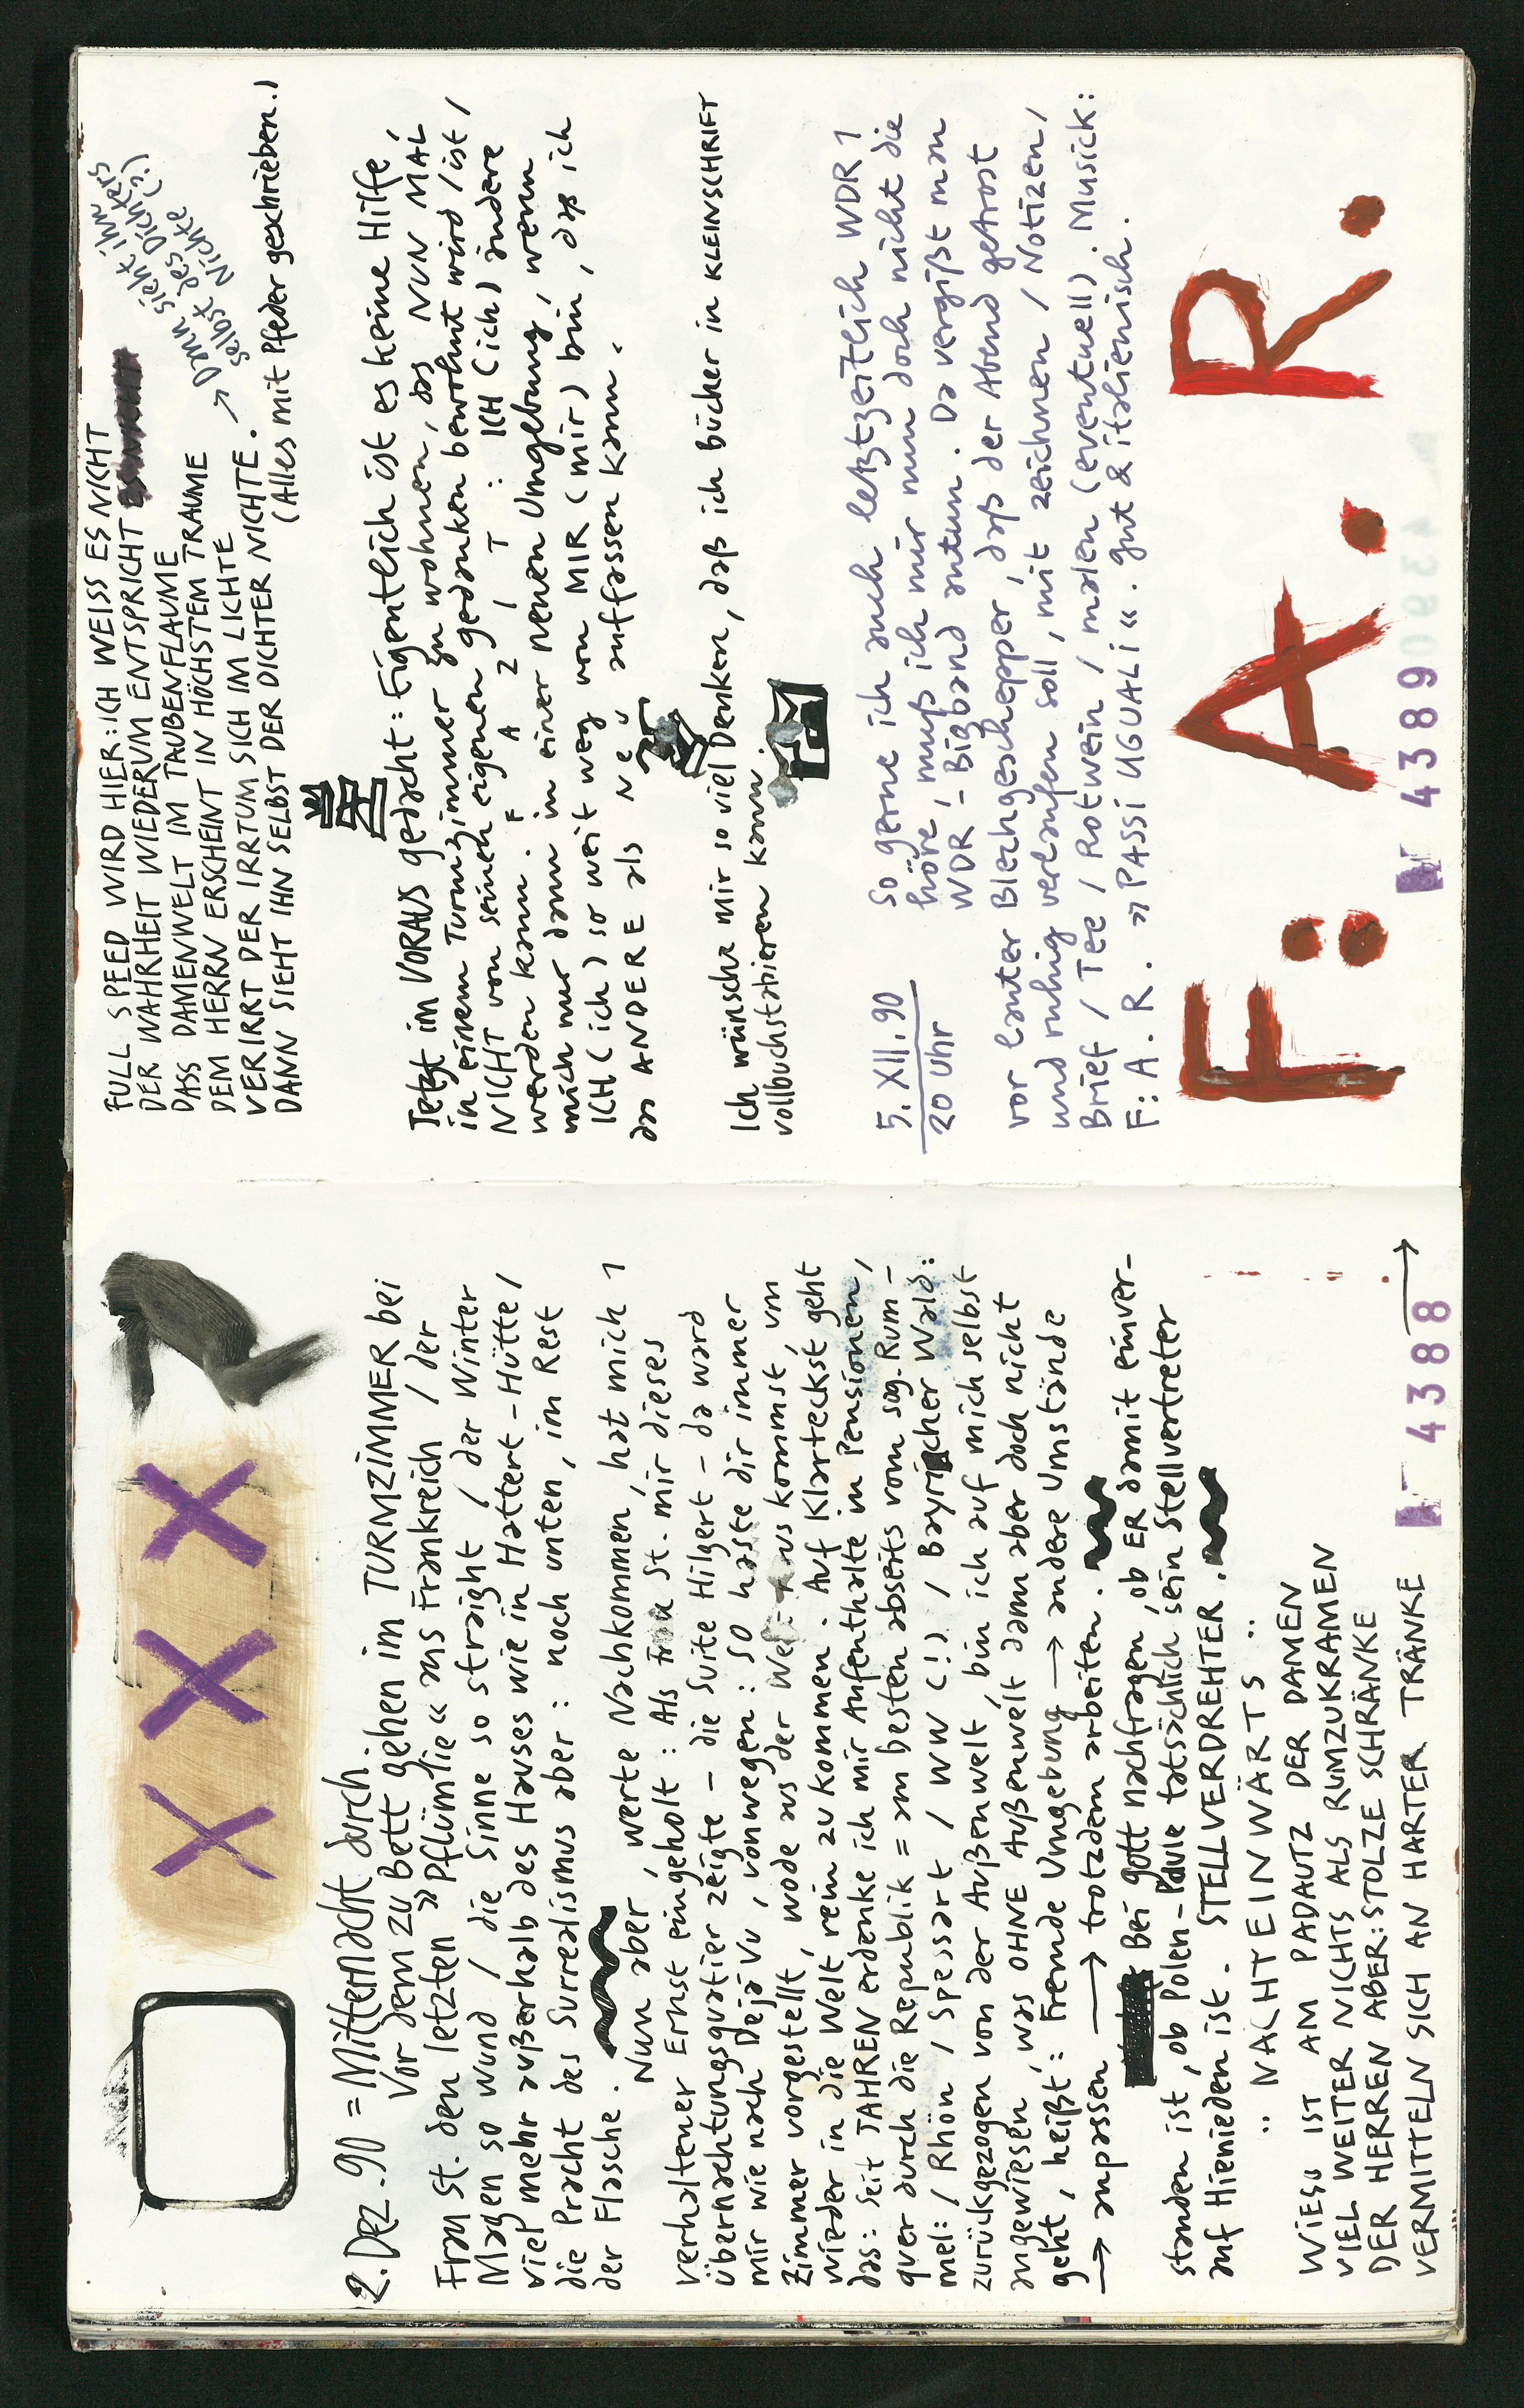 2. Dez. 90 = Mitternacht durch.
Vor dem zu Bett gehen im TURMZIMMER bei
Frau St. den letzten »Pflümlie« aus Frankreich / der
Magen so wund / die Sinne so straight / der Winter
viel mehr außerhalb des Hauses wie in Hattert-Hütte /
die Pracht des Surrealismus aber: noch unten, im Rest
der Flasche.
Nun aber, werte Nachkommen, hat mich 1
verhaltener Ernst eingeholt: Als Frau St. mir dieses
übernachtungsquatier zeigte – die Suite Hilgert – da ward
mir wie nach Dejà Vu, vonwegen: so haste dir immer
Zimmer vorgestellt, wode aus der Welt rauskommst, um
wieder in die Welt rein zu kommen. Auf Klarteckst geht
das: Seit JAHREN erdenke ich mir Aufenthalte in Pensionen,
quer durch die Republik = am besten abseits vom sog. Rum-
mel: / Rhön / Spessart / WW (!) / Bayrischer Wald:
zurückgezogen von der Außenwelt, bin ich auf mich selbst
angewiesen, was OHNE Außenwelt dann aber doch nicht
geht, heißt: Fremde Umgebung → andere Umstände
→ anpassen → trotzdem arbeiten.
Bei Gott nachfragen, ob ER damit einver-
standen ist, ob Polen-Paule tatsächlich sein Stellvertreter
auf Hienieden ist. STELLVERDREHTER.
.. NACHTEINWÄRTS ..
WIESO IST AM PADAUTZ DER DAMEN
VIEL WEITER NICHTS ALS RUMZUKRAMEN
DER HERREN ABER: STOLZE SCHRÄNKE
VERMITTELN SICH AN HARTER TRÄNKE
4388 →
FULL SPEED WIRD HIER: ICH WEISS ES NICHT
DER WAHRHEIT WIEDERUM ENTSPRICHT
DASS DAMENWELT IM TAUBENFLAUME
DEM HERRN ERSCHEINT IN HÖCHSTEM TRAUME
VERIRRT DER IRRTUM SICH IM LICHTE
DANN SIEHT IHN SELBST DER DICHTER NICHTE.
→ Dann sieht ihn
selbst des Dichters
Nichte (?)
(Alles mit Pfeder geschrieben.)
Jetzt im VORAUS gedacht: Eigentlich ist es keine Hilfe,
in einem Turmzimmer zu wohnen, das NUN MAL
NICHT von seinen eigenen gedanken bewohnt wird / ist /
werden kann. FAZIT: ICH (ich) ändere
mich nur dann in einer neuen Umgebung, wenn
ICH (ich) so weit weg von MIR (mir) bin, daß ich
das ANDERE als NEU auffassen kann.
Ich wünsche mir so viel Denken, daß ich Bücher in KLEINSCHRIFT
vollbuchstabieren kann.
5. XII. 90
20 Uhr
So gerne ich auch letztzeitlich WDR 1
höre, muß ich mir nun doch nicht die
WDR-Bigband antum. Da vergißt man
vor lauter Blechgeschepper, daß der Abend getrost
und ruhig verlaufen soll, mit zeichnen / Notizen /
Brief / Tee / Rotwein / malen (eventuell). Musick:
F: A. R. »PASSI UGUALI«. gut & italienisch.
F: A. R.
4389